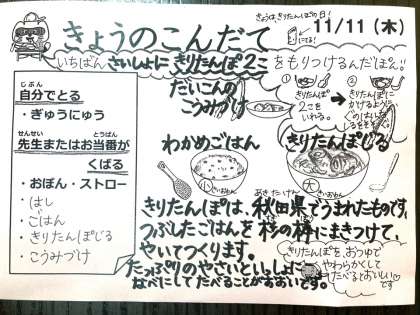 きょうのこんだて
きょうは、きりたんぽの日！
11/11（木）
いちばん さいしょに きりたんぽ2こ をもりつけるんだぽん!!
自分でとる
じぶん
・ぎゅうにゅう
先生またはお当番が
せんせい
とうばん
くばる
・おぼん・ストロー
・はし
・ごはん
・きりたんぽじる
・こうみづけ
だいこんの
こうみづけ
①
きりたんぽ
2こを
いれる。
②
きりたんぽに
かけるように
ぐのはいった
しるをそそぐ。
わかめごはん
小
きりたんぽじる
大
きりたんぽは、秋田県でうまれたものです。
あきたけん
つぶしたごはんを杉の棒にまきつけて、
やいてつくります。
たっぷりのやさいといっしょに
なべにしてたべることがおおいです。
きりたんぽを、おつゆで
やわらかくして
たべるとおいしい
です